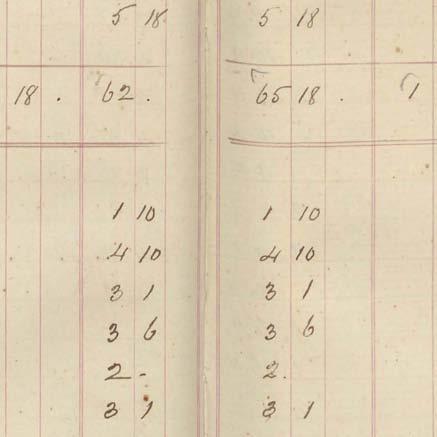 5 18 5 18
18 . 62 . 65 18 . 1
1 10 1 10
4 10 4 10
3 1 3 1
3 6 3 6
2 - 2 .
3 1 3 1